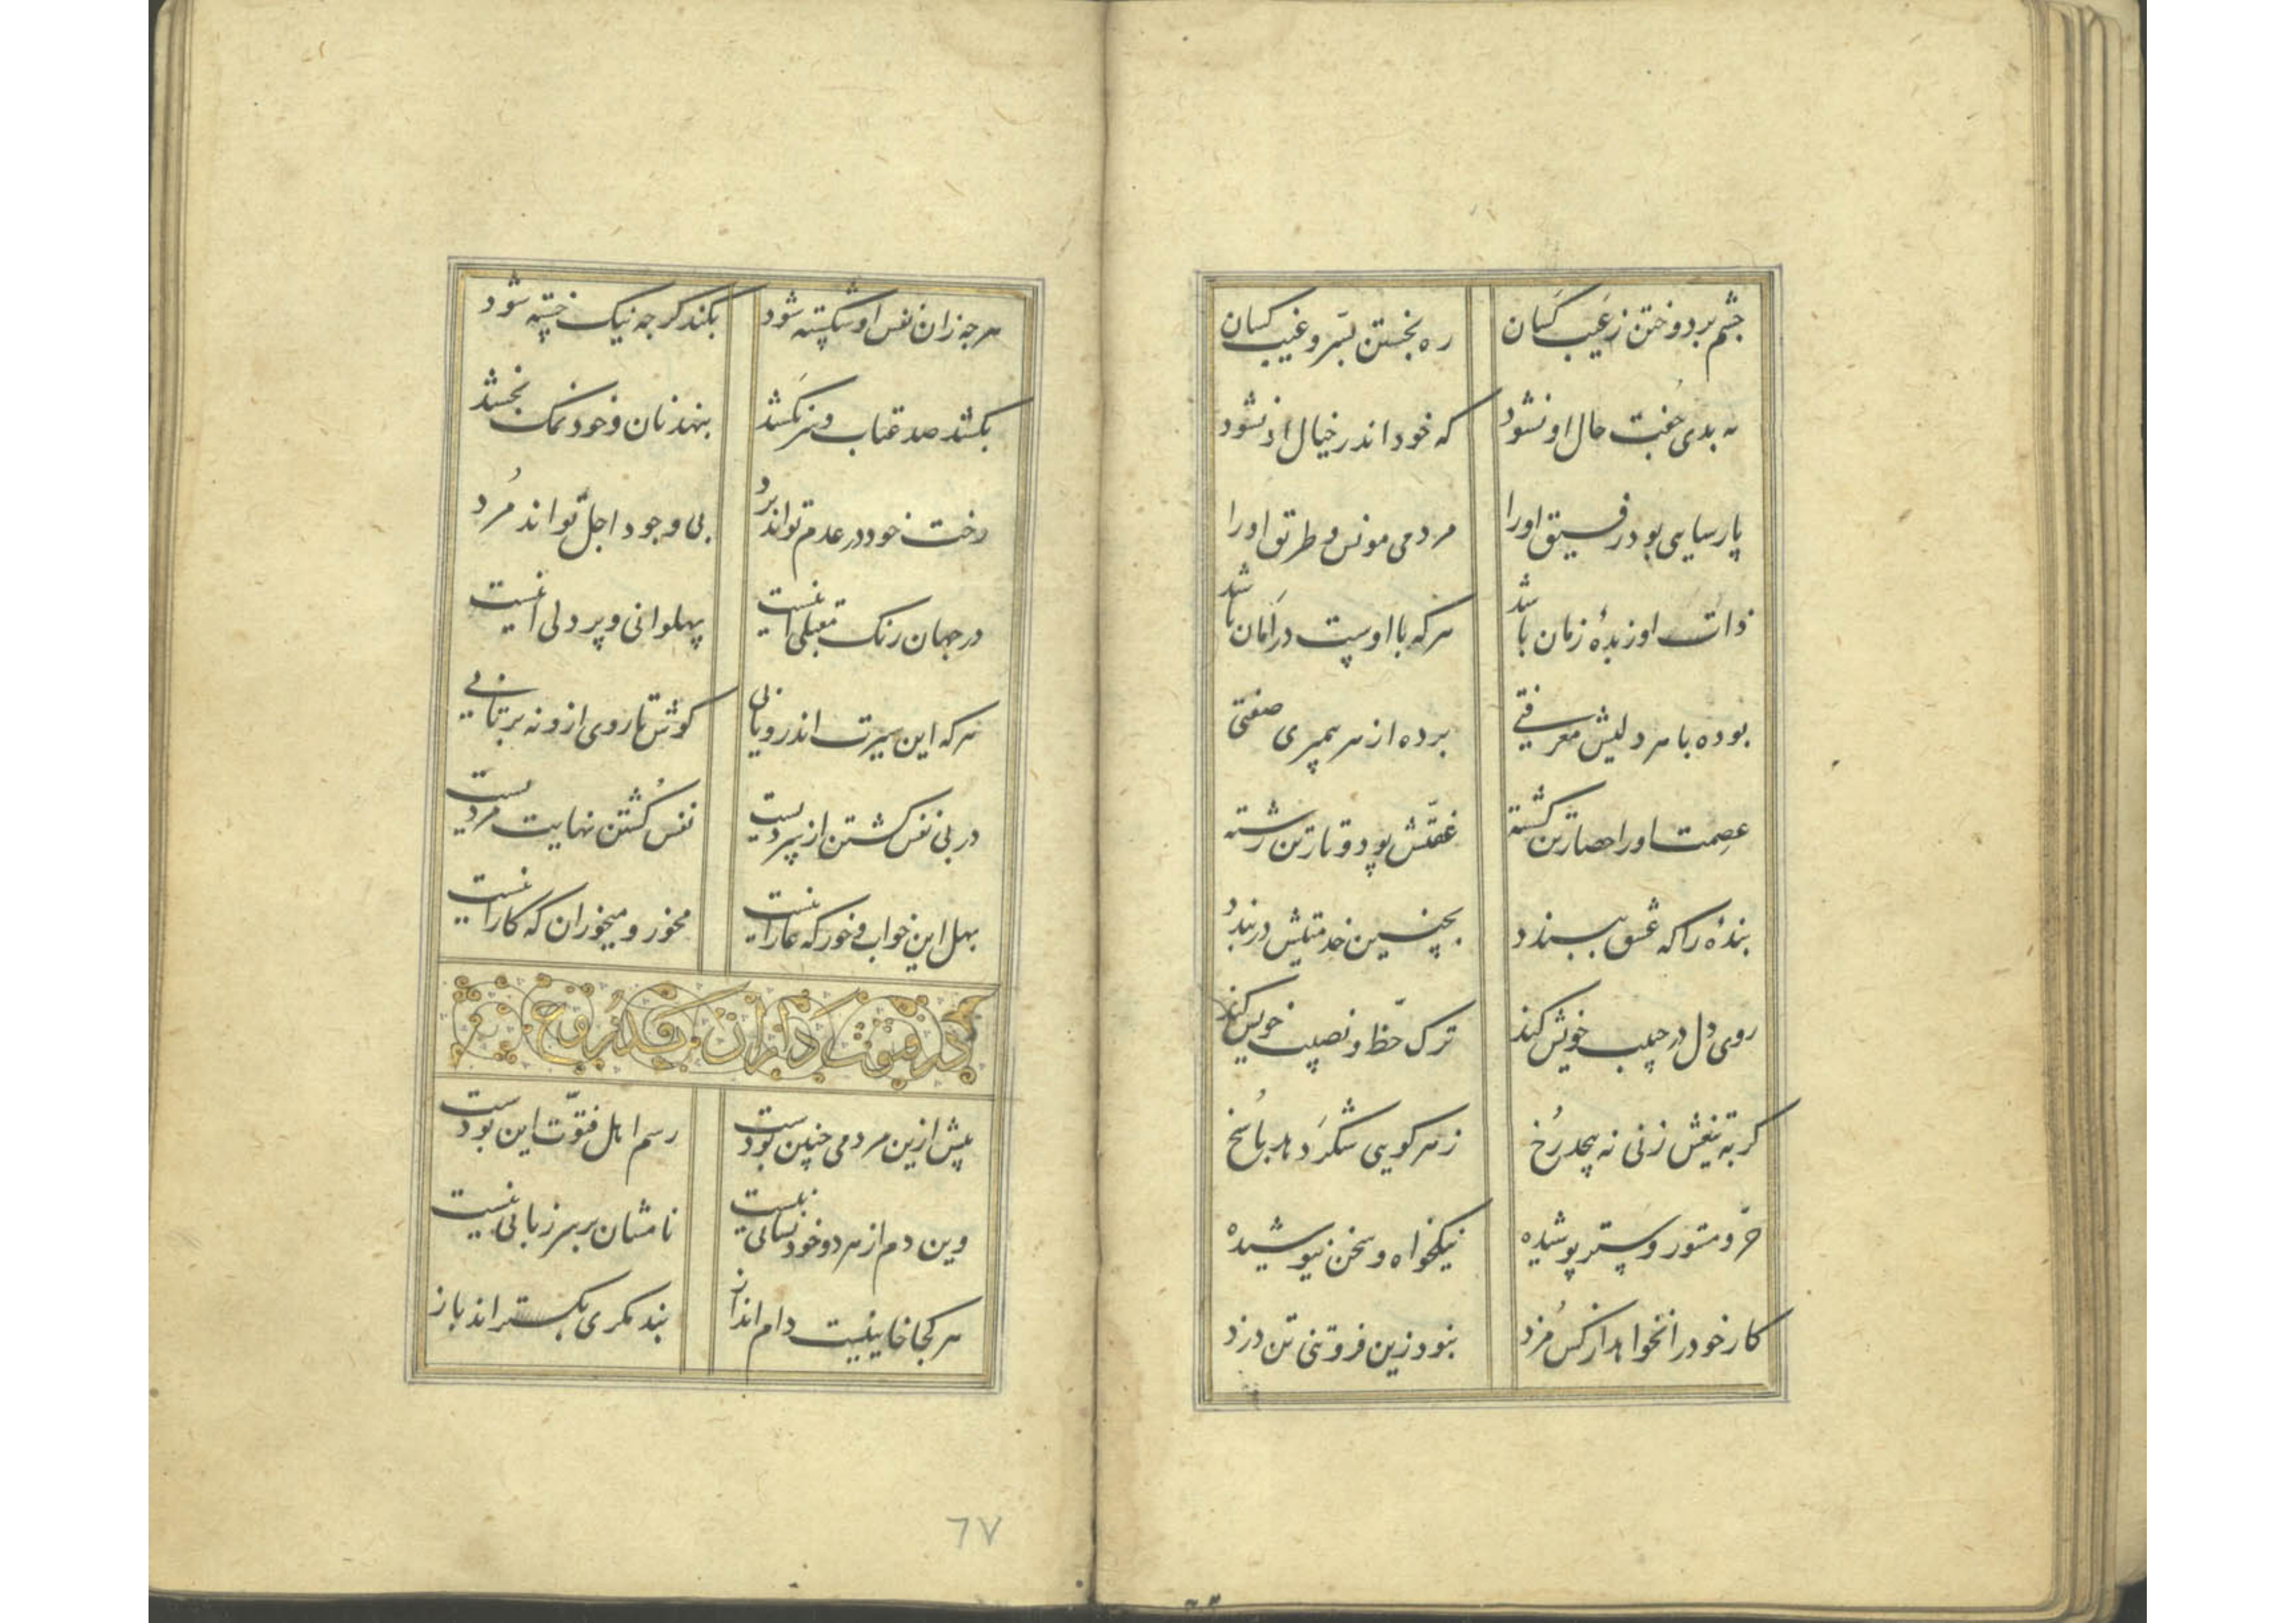 چشم بردوختن ز عَیب کَسان ره بجستن بسّر و غیب کسان
به بدی جُفت حال او نشود که خود اندر خیال او نشود
پارسایی بود رفیق اورا مردمی مونس و طریق اورا
ذات او زبدهٔ زمان باشد هرکه با اوست در اَمان باشد
بوده با هر دلیش معرفتی برده از هر پیمبری صفتی
عِصمت او را حصار تن گشته عفّتش پود و تار تن رشته
بندهٔ را که عشق بپسندد بچنین خدمتیش دربندد
روی دل در حبیب خویش کند ترک حظّ و نصیب خویش کند
گر به تیغش زنی نه پیچد رُخ زهر گویی شکَر دهد پاسُخ
حرّ و مستور و ستر پوشیده نیکخواه و سخن نیوشیده
کار خود را نخواهد از کس مُزد نبود زین فروتنی تن دزد
هرچه زان نفس او شکسته شود بکند گرچه نیک خسته شود
بکشد صد عتاب و سر نکَشد بنهد نان و خود نمک نچشد
رخت خود در عدم تواند برد بی وجود اجل تواند مُرد
در جهان رنگ مقبلی اینست پهلوانی و پردلی اینست
هرکه این سیرت اندرو یابی کوش تا روی ازو نه برتابی
در پی نفس گشتن از پیریست نفس کُشتن نهایت مردیست
بهل این خواب و خور که عار اینست مخور و میخوران که کار اینست
در فتوت داران بی قدر و ح
پیش ازین مردمی چنین بودست رسم اهل فتوّت این بودست
وین دم از هر دو خود نشانی نیست نامشان بر سر زبانی نیست
هر کجا خاینیست دام انداز بند مکری بگسترانَد باز
٦٧